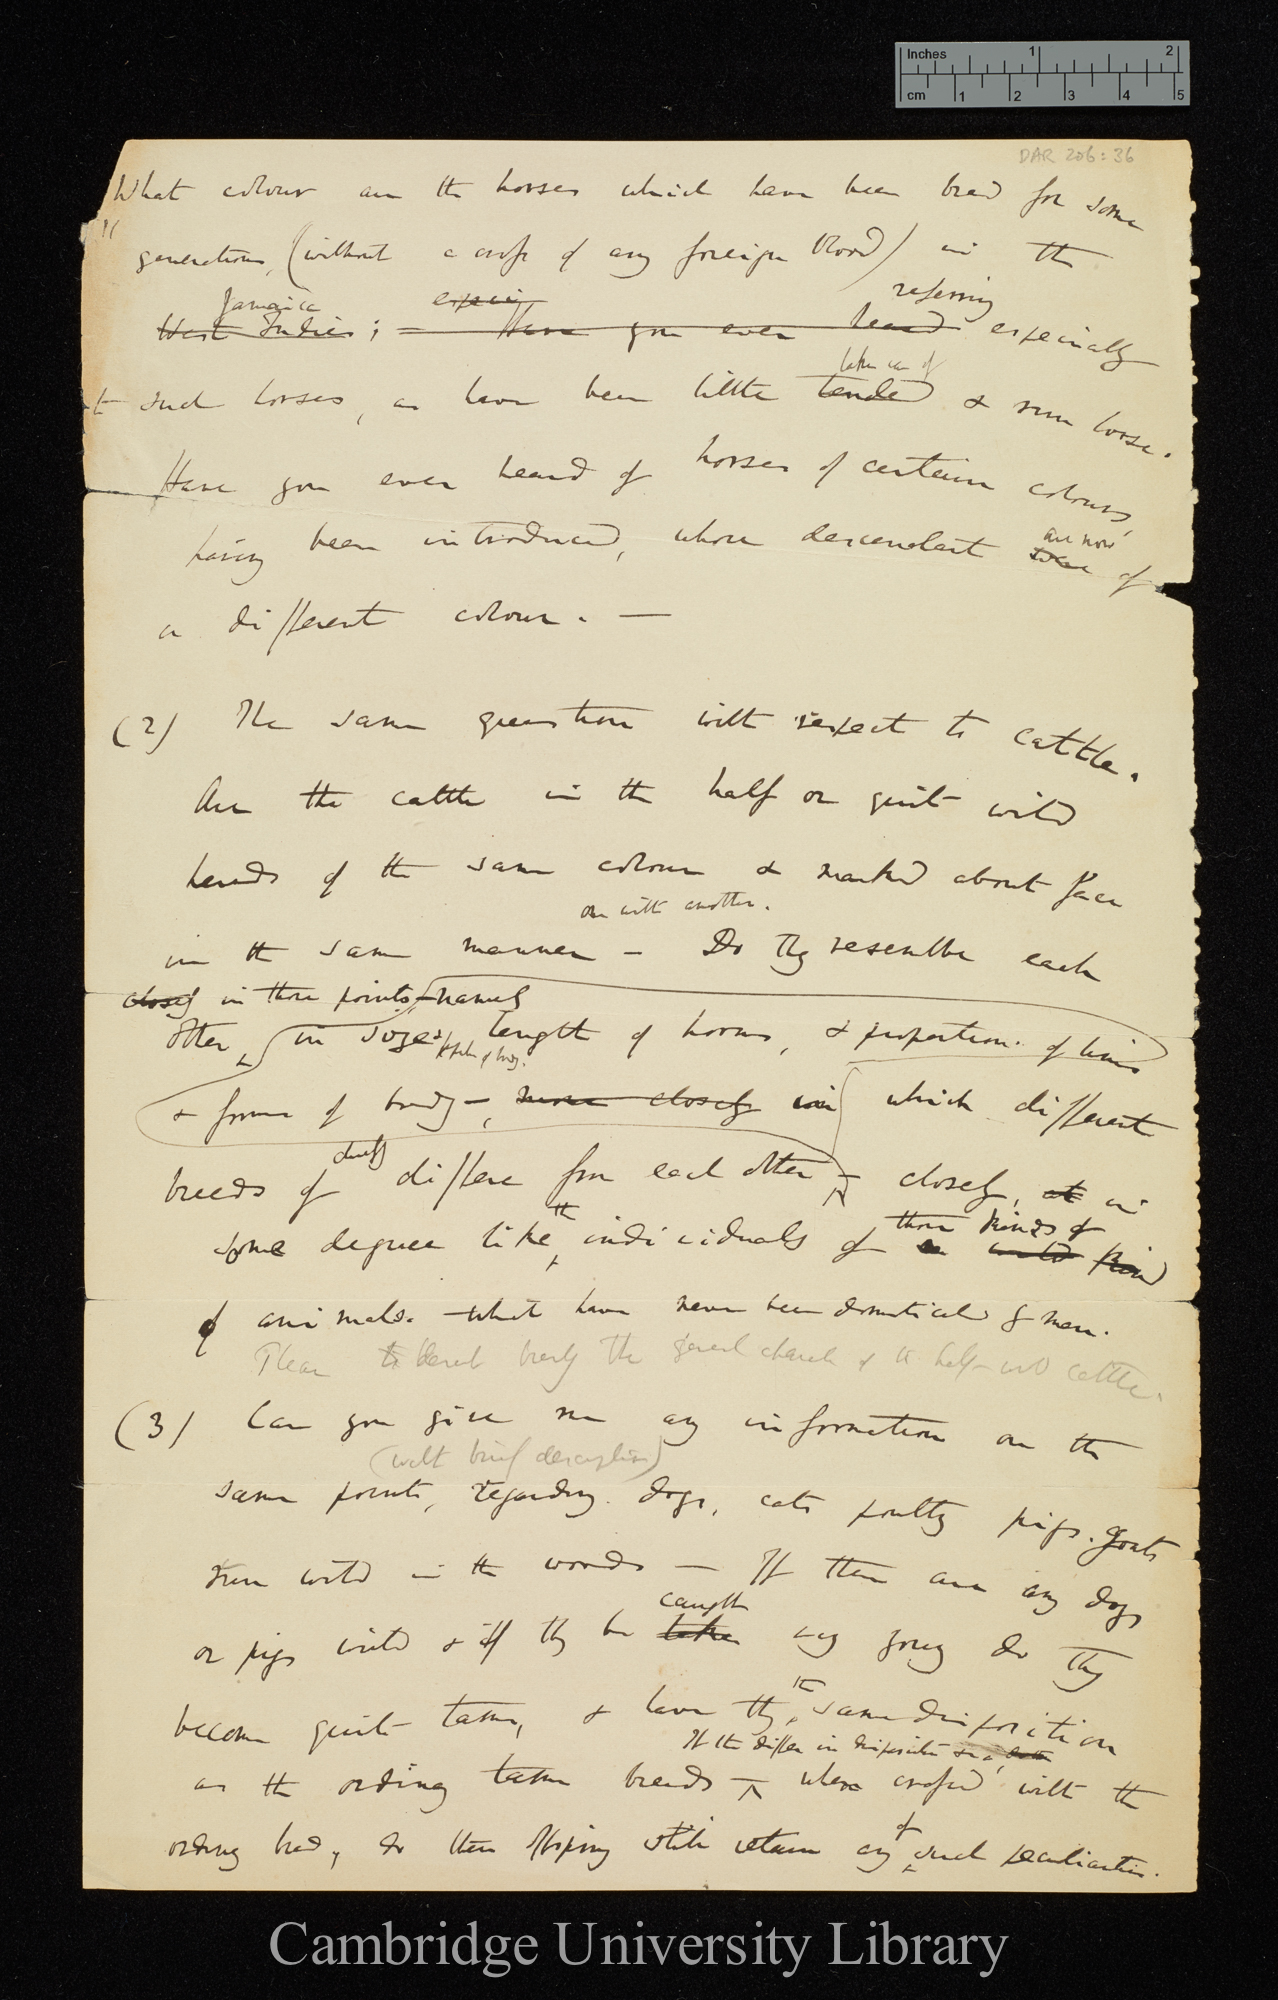 Inches 1 2
cm 1 2 3 4 5
DAR 206:36
What colour are the horses which have been bred for some
generations, (without a cross of any foreign blood) in the
Jamaica referring
West Indies; = Have you ever heard especially
taken care of
t such horses, as have been little tended & run loose.
Have you ever heard of horses of certain colours,
having been introduced, whose descendant are now of
a different colour. —
(2) The same question with respect to cattle.
Are the cattle in the half or quit wild
herds of the same colour & marked about face
one with another.
in the same manner — Do they resemble each
closely in those points, namely
other, in size, length of horns, & proportion of limbs
& form of body —, more closely in which different
breeds of differ from each other — closely, in
the those kinds of
some degree like individuals of wild kind
of animals. — what have never been domesticated by man.
Please the general of the half-wild cattle.
(3) Can you give me any information on the
(with brief description)
same points, regarding dogs, cats poultry pigs. goats
run wild in the woods — If there are any dogs
caught
or pigs wild & if they be taken very young do they
the
become quit tame, & have they same disposition
If the differ in disposition
as the ordinary tame breeds — when crossed with the
of
ordinary bred, do their offspring still retain any such peculiarities.
Cambridge University Library